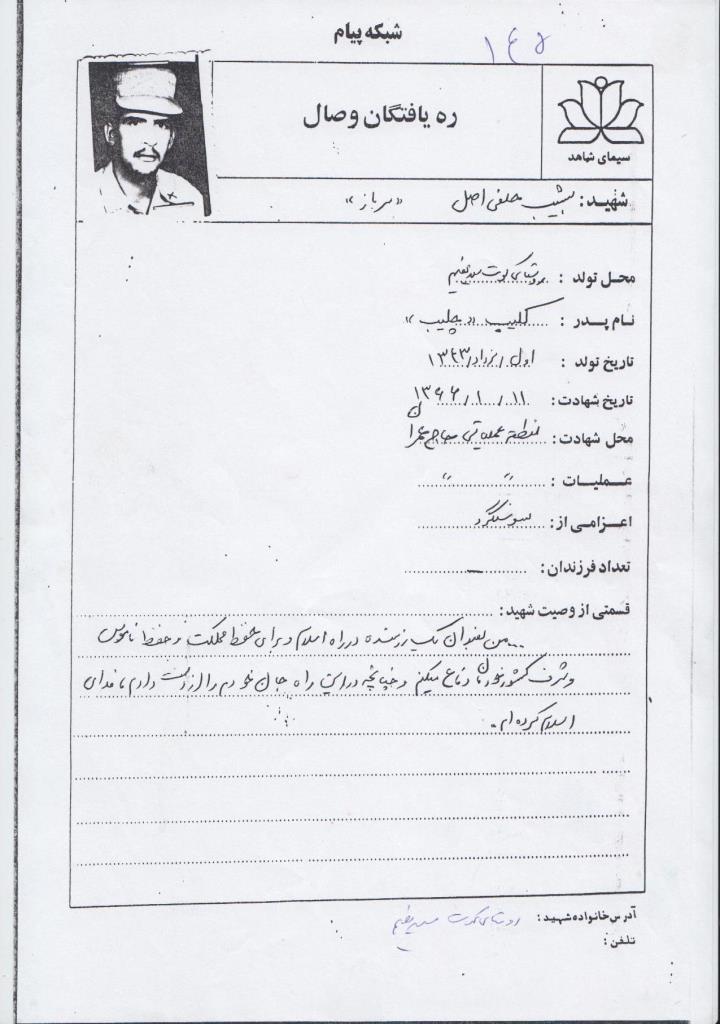 شبکه پیام
۱۴۵
ره یافتگان وصال
سیمای شاهد
شهید: حلفی اصل «سرباز»
محل تولد : روستای کوت سید نعیم
نام پدر : کلیب «چلیب»
تاریخ تولد : اول /مرداد/۱۳۴۳
تاریخ شهادت: ۱۳۶۶/۱/۱۱
محل شهادت: منطقه عملیاتی حاج عمران
عملیات : " "
اعزامی از: سوسنگرد
تعداد فرزندان: —
قسمتی از وصیت شهید:
...من بعنوان یک رزمنده در راه اسلام و برای حفظ مملکت و حفظ ناموس
و شرف کشور خودمان دفاع میکنم و چنانچه در این راه جان خودم را از دست دادم فدای
اسلام کرده ام.
آدرس خانواده شهید: روستای کوت سید نعیم
تلفن: